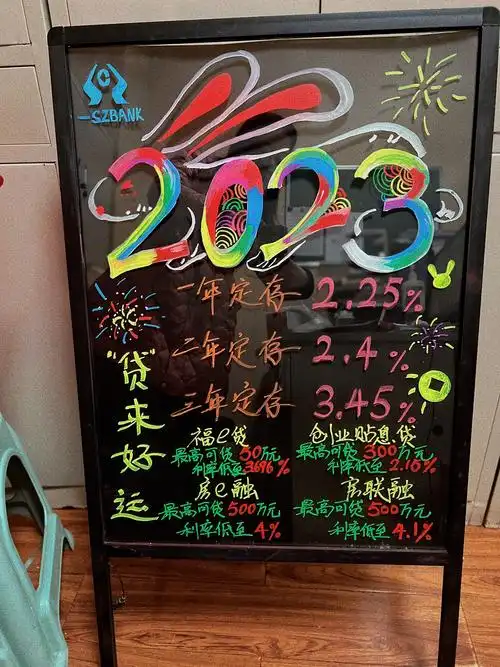 SZBANK
2023
一年定存 2.25%
二年定存 2.4%
三年定存 3.45%
"贷"来好运
福e贷
最高可贷50万元
利率低至3.696%
创业贴息贷
最高可贷300万元
利率低至2.15%
房e融
最高可贷500万元
利率低至4%
房联融
最高可贷500万元
利率低至4.1%